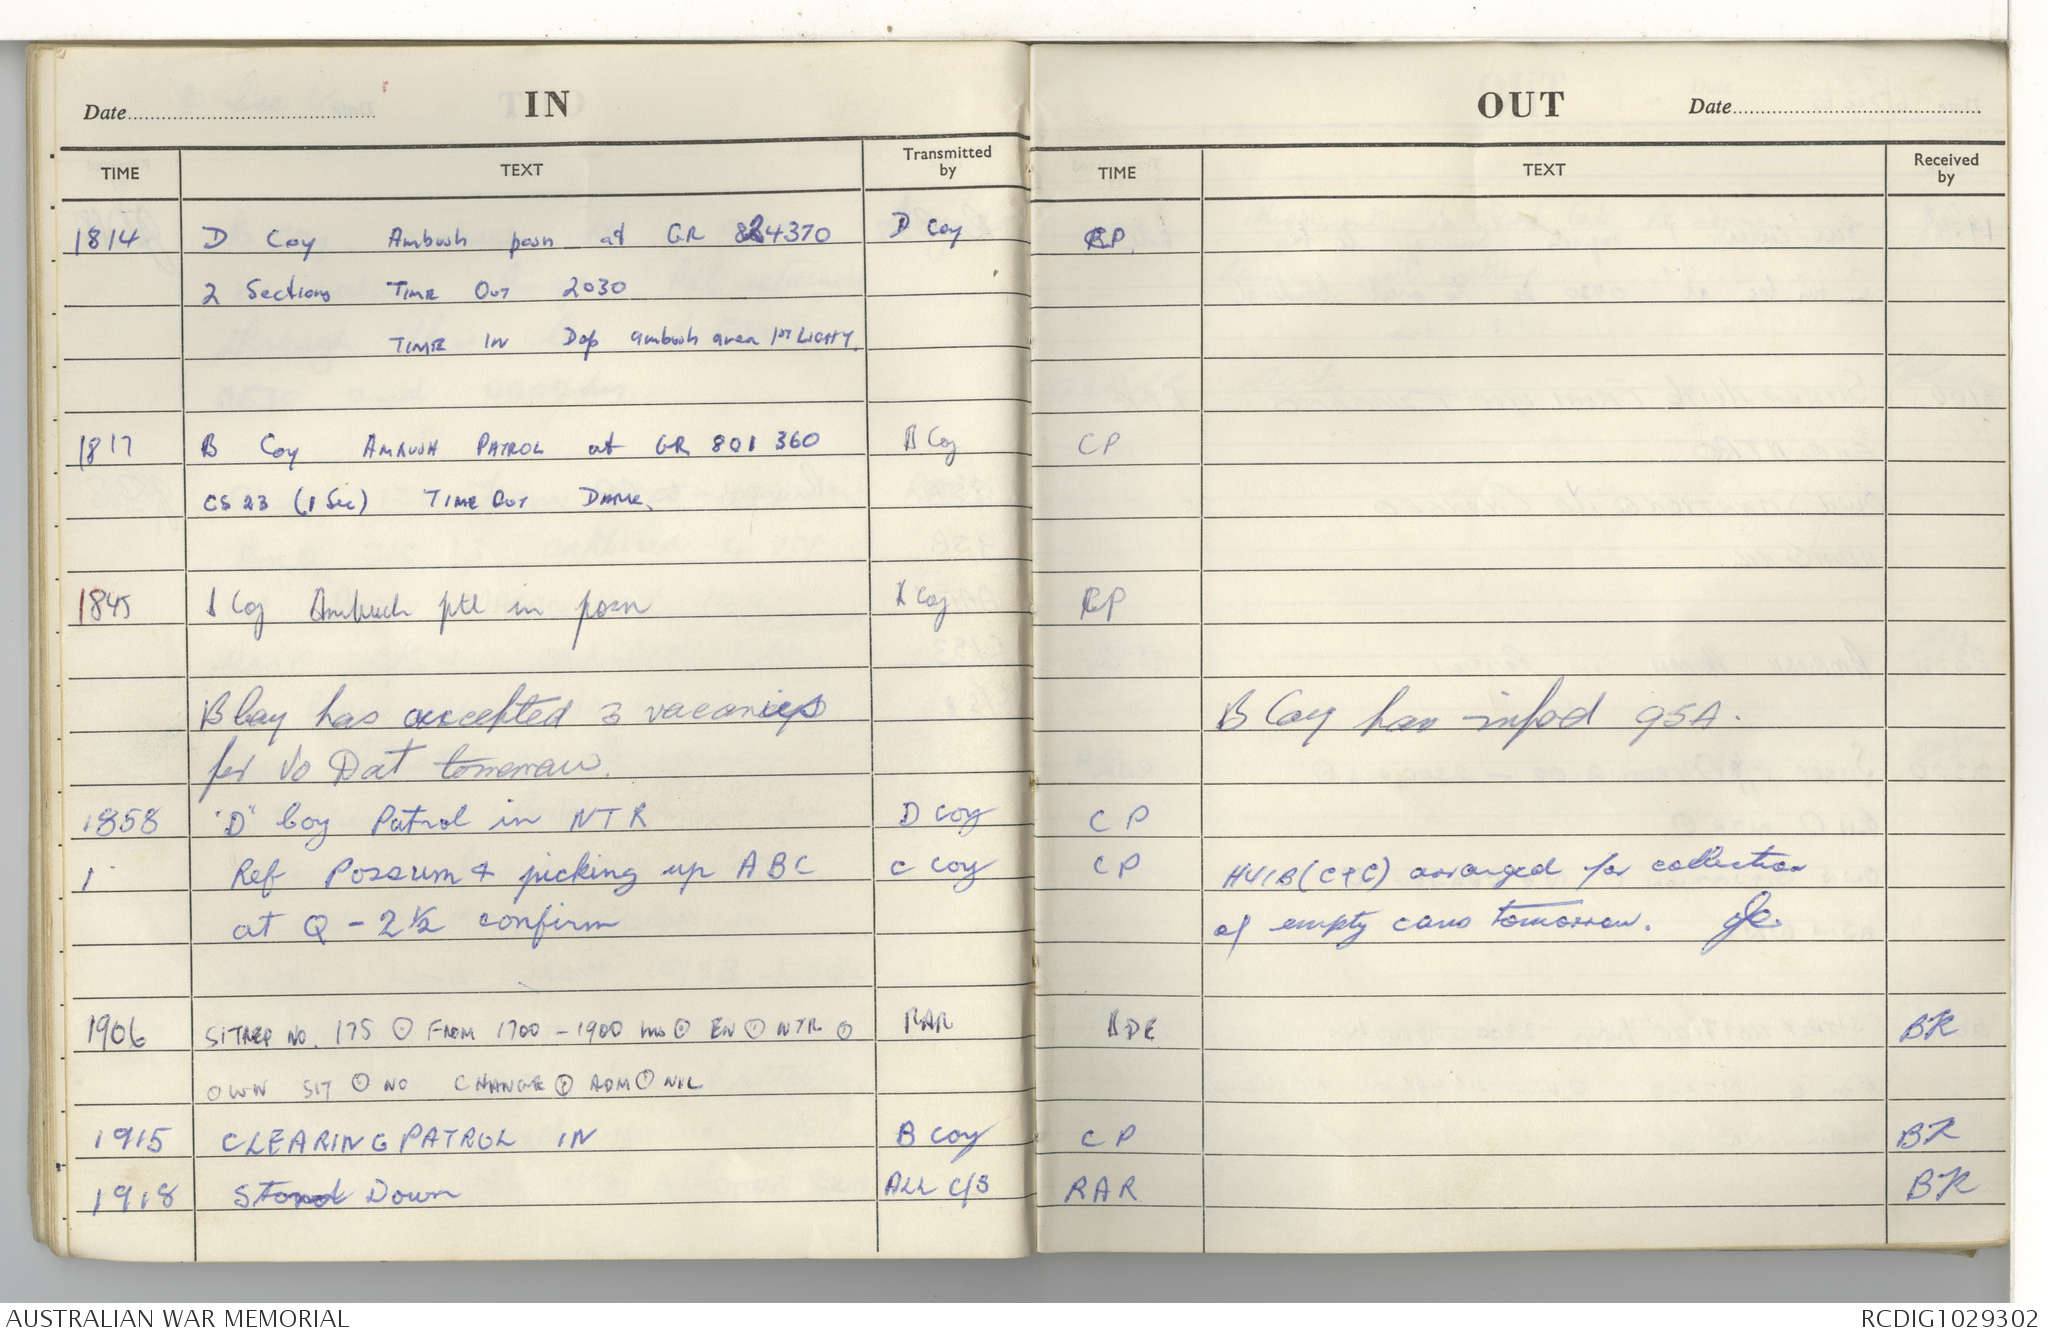 Date IN
TIME TEXT Transmitted by
1814 D Coy Ambush posn at GR 824370 D Coy
2 Sections TIME OUT 2030
TIME IN Dep ambush area 1st LIGHT.
1817 B Coy AMBUSH PATROL at GR 801 360 B Coy
CS 23 (1 Sec) TIME OUT DARK.
1845 A Coy Ambush ptl in posn A Coy
B Coy has accepted 3 vacancies
for Vo Dat tomorrow.
1858 "D" Coy Patrol in NTR D Coy
1 Ref Possum & picking up ABC C Coy
at Q - 2 1/2 confirm
1906 SITREP NO. 175 FROM 1700 - 1900 hrs EN NTR RAR
OWN SIT NO CHANGE ADM NIL
1915 CLEARING PATROL IN B Coy
1918 Stand Down ALL C/S
OUT Date
TIME TEXT Received by
CP.
CP
CP
B Coy has infod 95A.
CP
CP HU1B (C & C) arranged for collection
of empty cans tomorrow.
BDE BK
CP BK
RAR BK
AUSTRALIAN WAR MEMORIAL RCDIG1029302